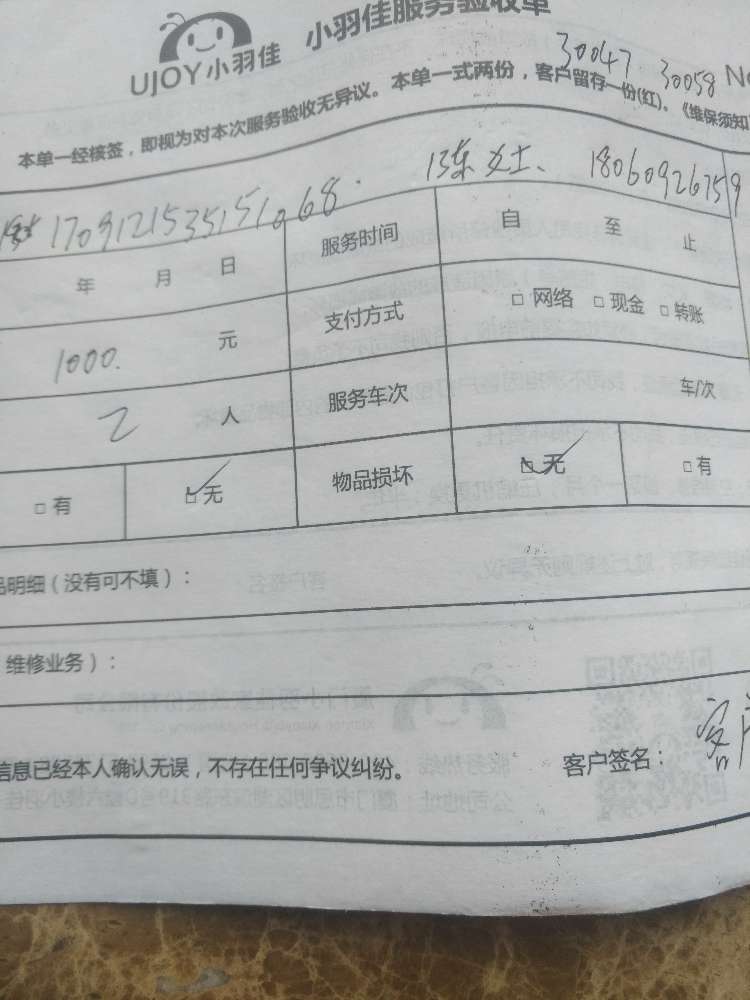 UJOY小羽佳 小羽佳服务验收单
30047 30058 No
本单一经核签，即视为对本次服务验收无异议。本单一式两份，客户留存一份(红)。《维保须知
1709121535151068. 陈女士、 18060926759
年 月 日 服务时间 自 至 止
1000. 元 支付方式 □ 网络 □ 现金 □ 转账
2 人 服务车次 车/次
□ 有 □ 无 物品损坏 □ 无 □ 有
品明细（没有可不填）：
维修业务）：
信息已经本人确认无误，不存在任何争议纠纷。 客户签名：